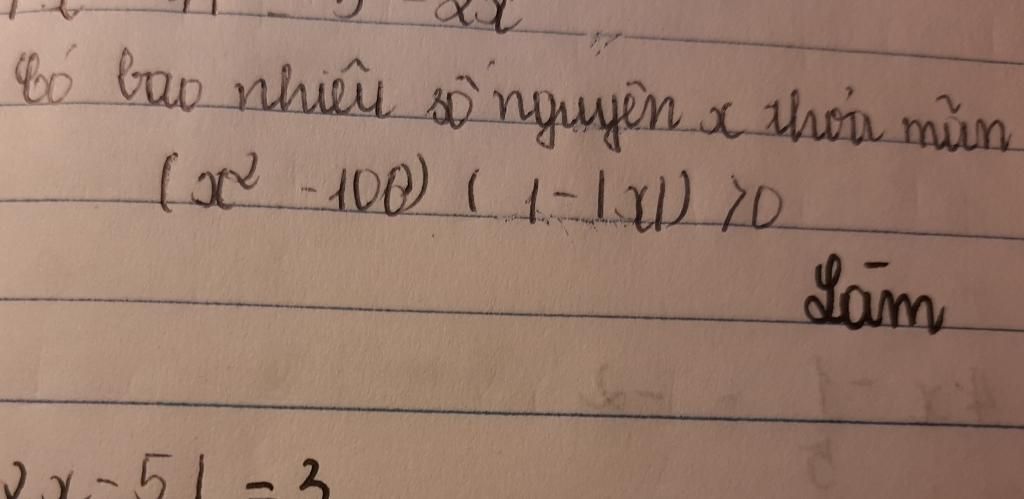 - 2x
Có bao nhiêu số nguyên x thỏa mãn
(x² - 100) ( 1 - |x|) > 0
Làm
2x - 5| = 3